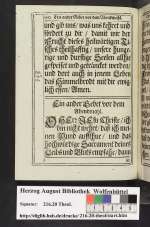 Ein ander Gebet vor dem Abendmahl.
und gib uns, was uns fehlet und
fordert zu dir / damit wir der
Frucht dieses heilwürtigen Ti-
sches theilhafftig / unsere hunge-
rige und durstige Seelen allhie
gespeiset und getränket werden /
und dort auch in jenem Leben
das Himmelbrodt mit dir ewig-
lich essen / Amen.
Ein ander Gebet vor dem
Abendmahl.
O HErr JEsu Christe / ich
bin nicht werth / daß ich mei-
nen Mund aufthue / und das
Hochwürdige Sacrament deines
Leibs und Bluts empfahe / dann
Herzog August Bibliothek Wolfenbüttel
Signatur: 216.28 Theol.
http://diglib.hab.de/drucke/216-28-theol/start.htm